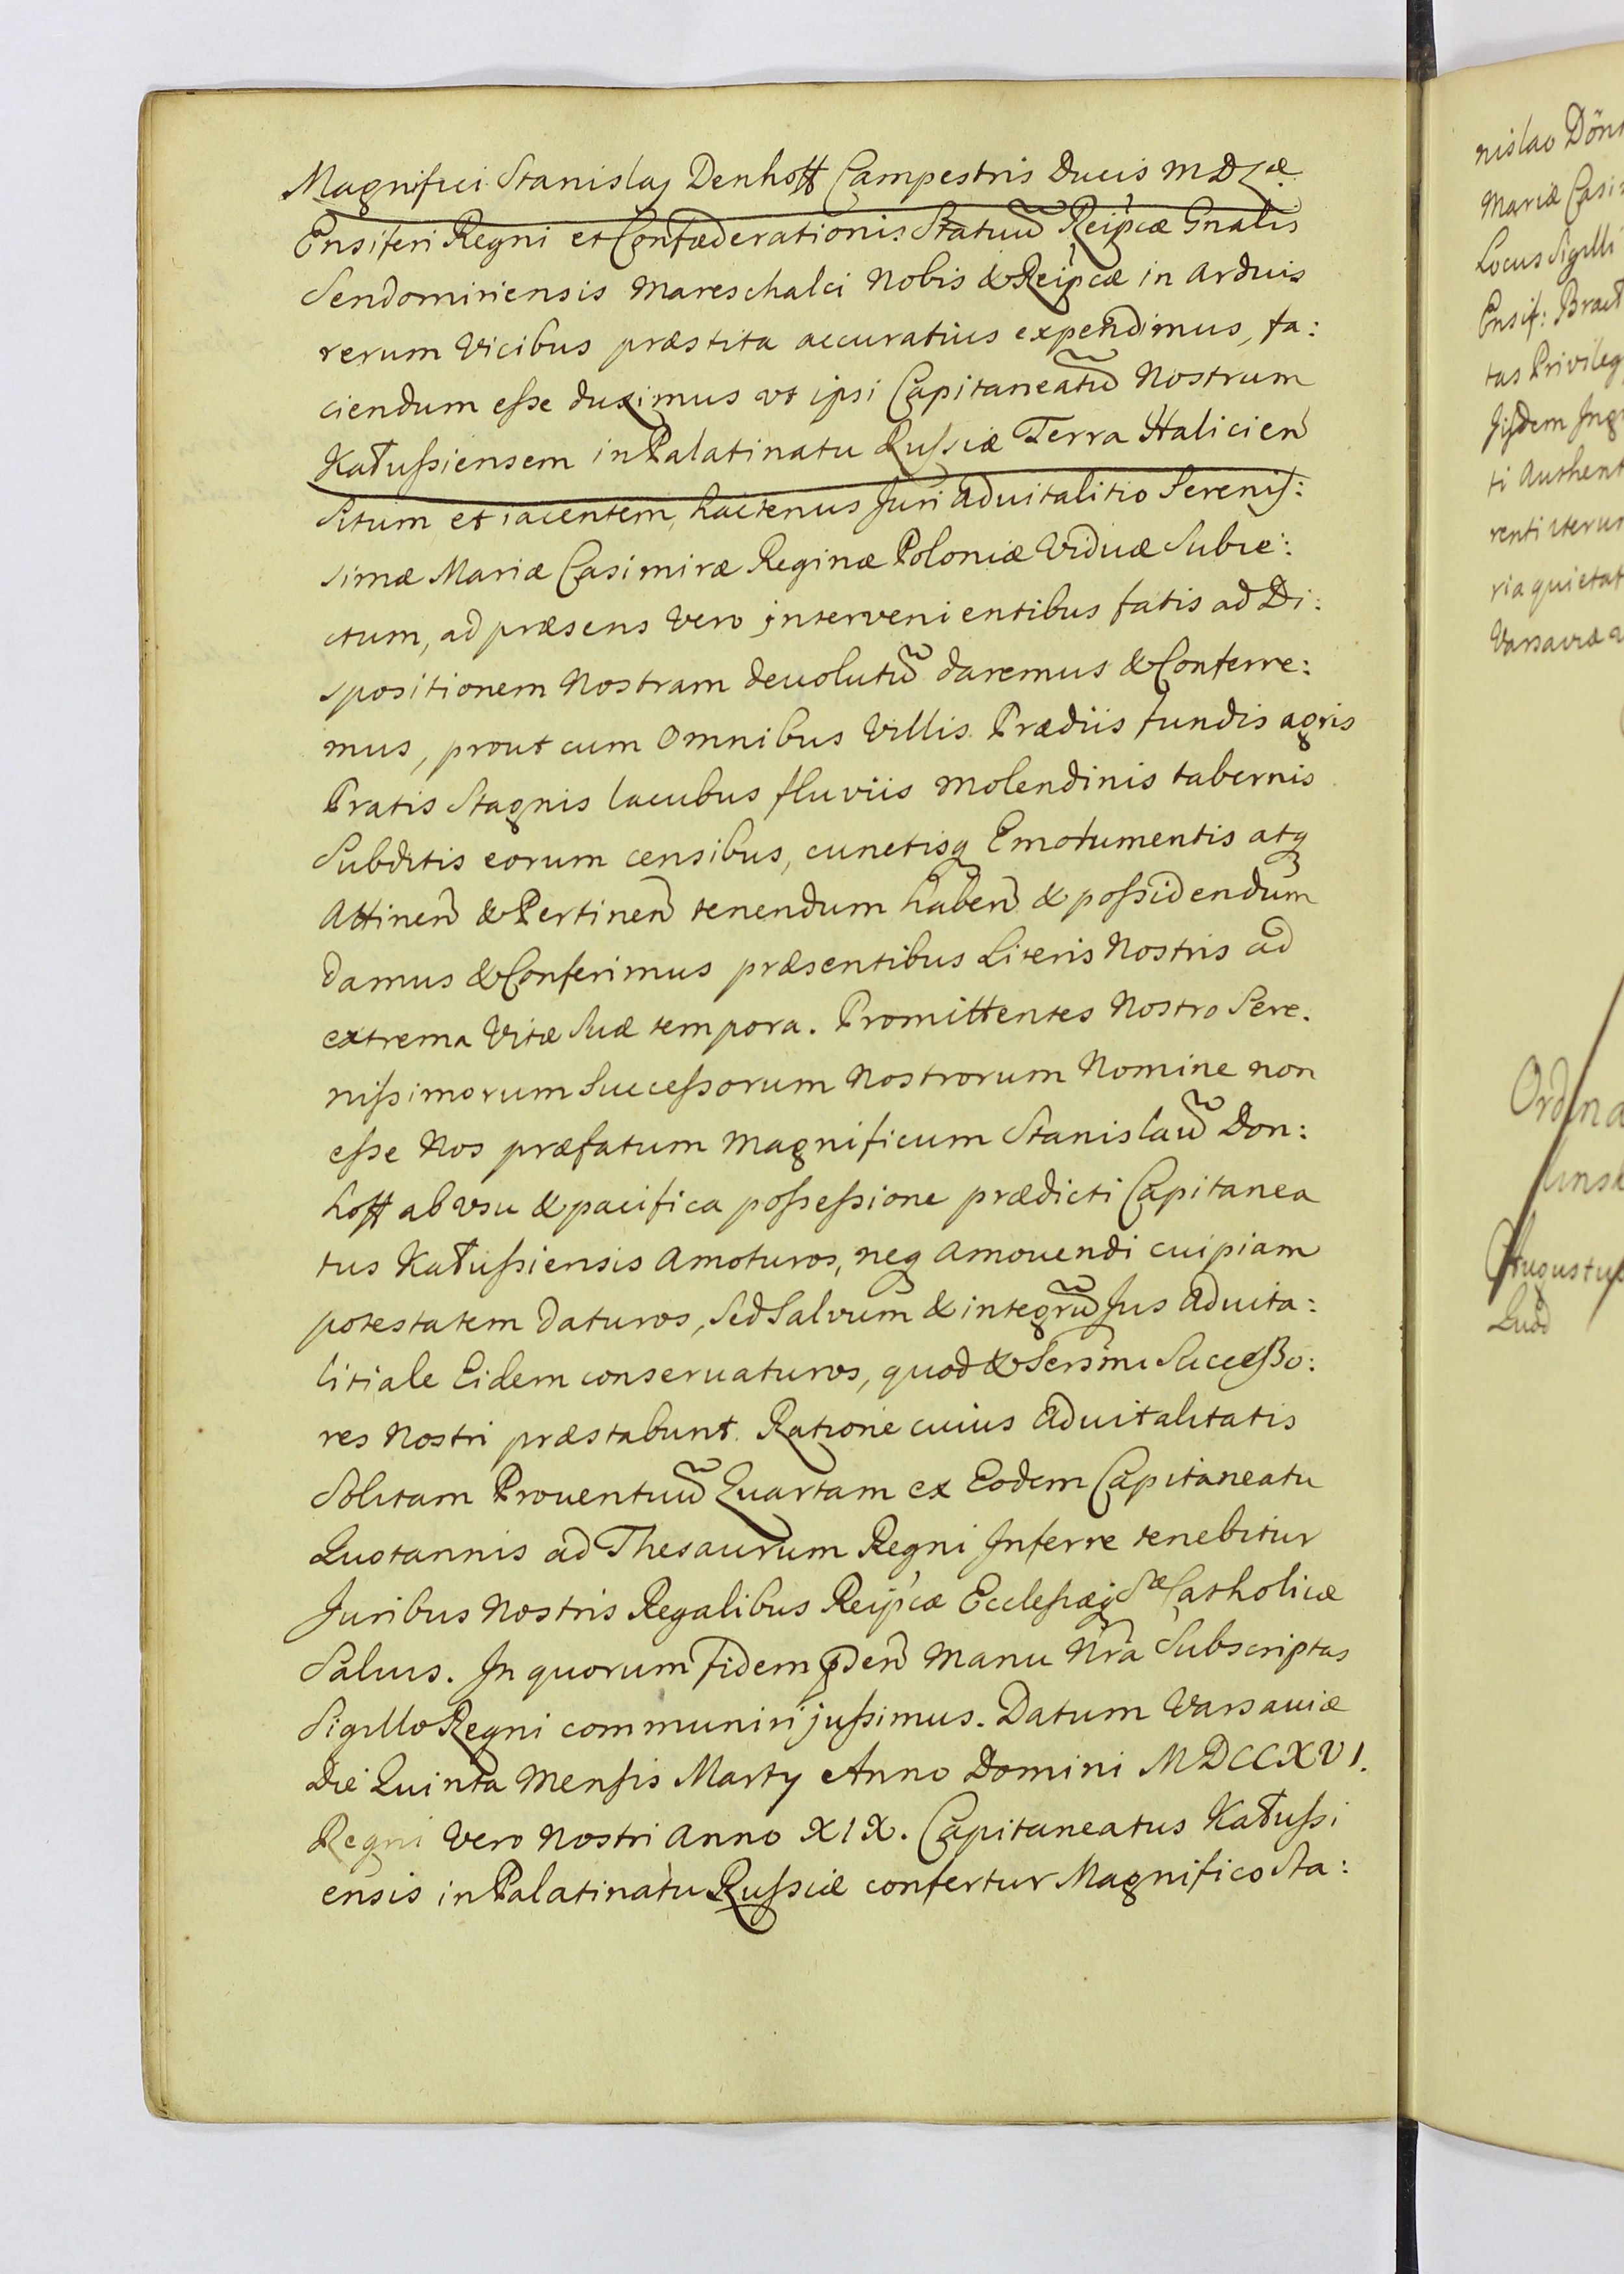 Magnifici Stanislaj Denhoff Campestris Ducis M D Læ
Ensiferi Regni et Confæderationis Statuũ Reipcæ Gnalis
Sendomiriensis Mareschalci Nobis & Reipcæ in arduis
rerum Vicibus præstita accuratius expendimus, fa:
ciendum esse duximus vt ipsi Capitaneatũ Nostrum
Kałussiensem in Palatinatu Russiæ Terra Halicien
Situm et iacentem, hactenus Juri aduitalitio Sereniss:
simæ Mariæ Casimiræ Reginæ Poloniæ Viduæ Subie:
ctum, ad præsens Vero intervenientibus fatis ad Di:
spositionem Nostram deuolutũ daremus & Conferre:
mus, prout cum Omnibus Villis Prædiis fundis agris
Pratis Stagnis lacubus fluviis Molendinis tabernis
Subditis eorum censibus, cunctisq Emolumentis atq
Attinen & Pertinen tenendum haben & possidendum
damus & Conferimus præsentibus Literis Nostris ad
extrema Vitæ Suæ tempora. Promittentes Nostro Sere.
nissimorum Successorum Nostrorum Nomine non
esse Nos præfatum Magnificum Stanislaũ Don:
hoff ab vsu & pacifica possessione prædicti Capitanea
tus Kałussiensis Amoturos, neq Amouendi cuipiam
potestatem Daturos, Sed Salvum & integrũ Jus Aduita:
litiale Eidem conseruaturos, quod & Sersmi Successo:
res Nostri præstabunt. Ratione cuius Aduitalitatis
Solitam Prouentuũ Quartam ex Eodem Capitaneatu
Quotannis ad Thesaurum Regni Inferre tenebitur
Juribus Nostris Regalibus Reipcæ Ecclesiæq Sæ Catholicæ
Saluis. In quorum fidem pden Manu Nra Subscriptas
Sigillo Regni communiri jussimus. Datum Varsauiæ
Die Quinta Mensis Martij Anno Domini MDCCXVI.
Regni Vero Nostri Anno XIX. Capitaneatus Kałussi
ensis in Palatinatu Russiæ confertur Magnifico Sta:
nislao Dön
Mariæ Casi
Locus Sigilli
Ensif: Bract
tas Privileg
ti Authent
renti iterum
ria quietat
Varsaviæ
Ordina
Augustus
Quod